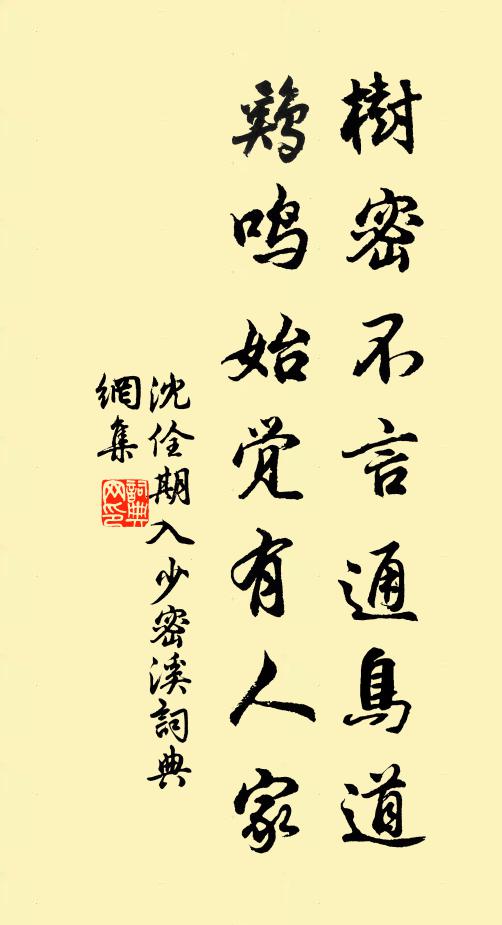 樹密不言通鳥道
鷄鳴始覺有人家
沈佺期入少密溪詞典
網集
詞典
网印